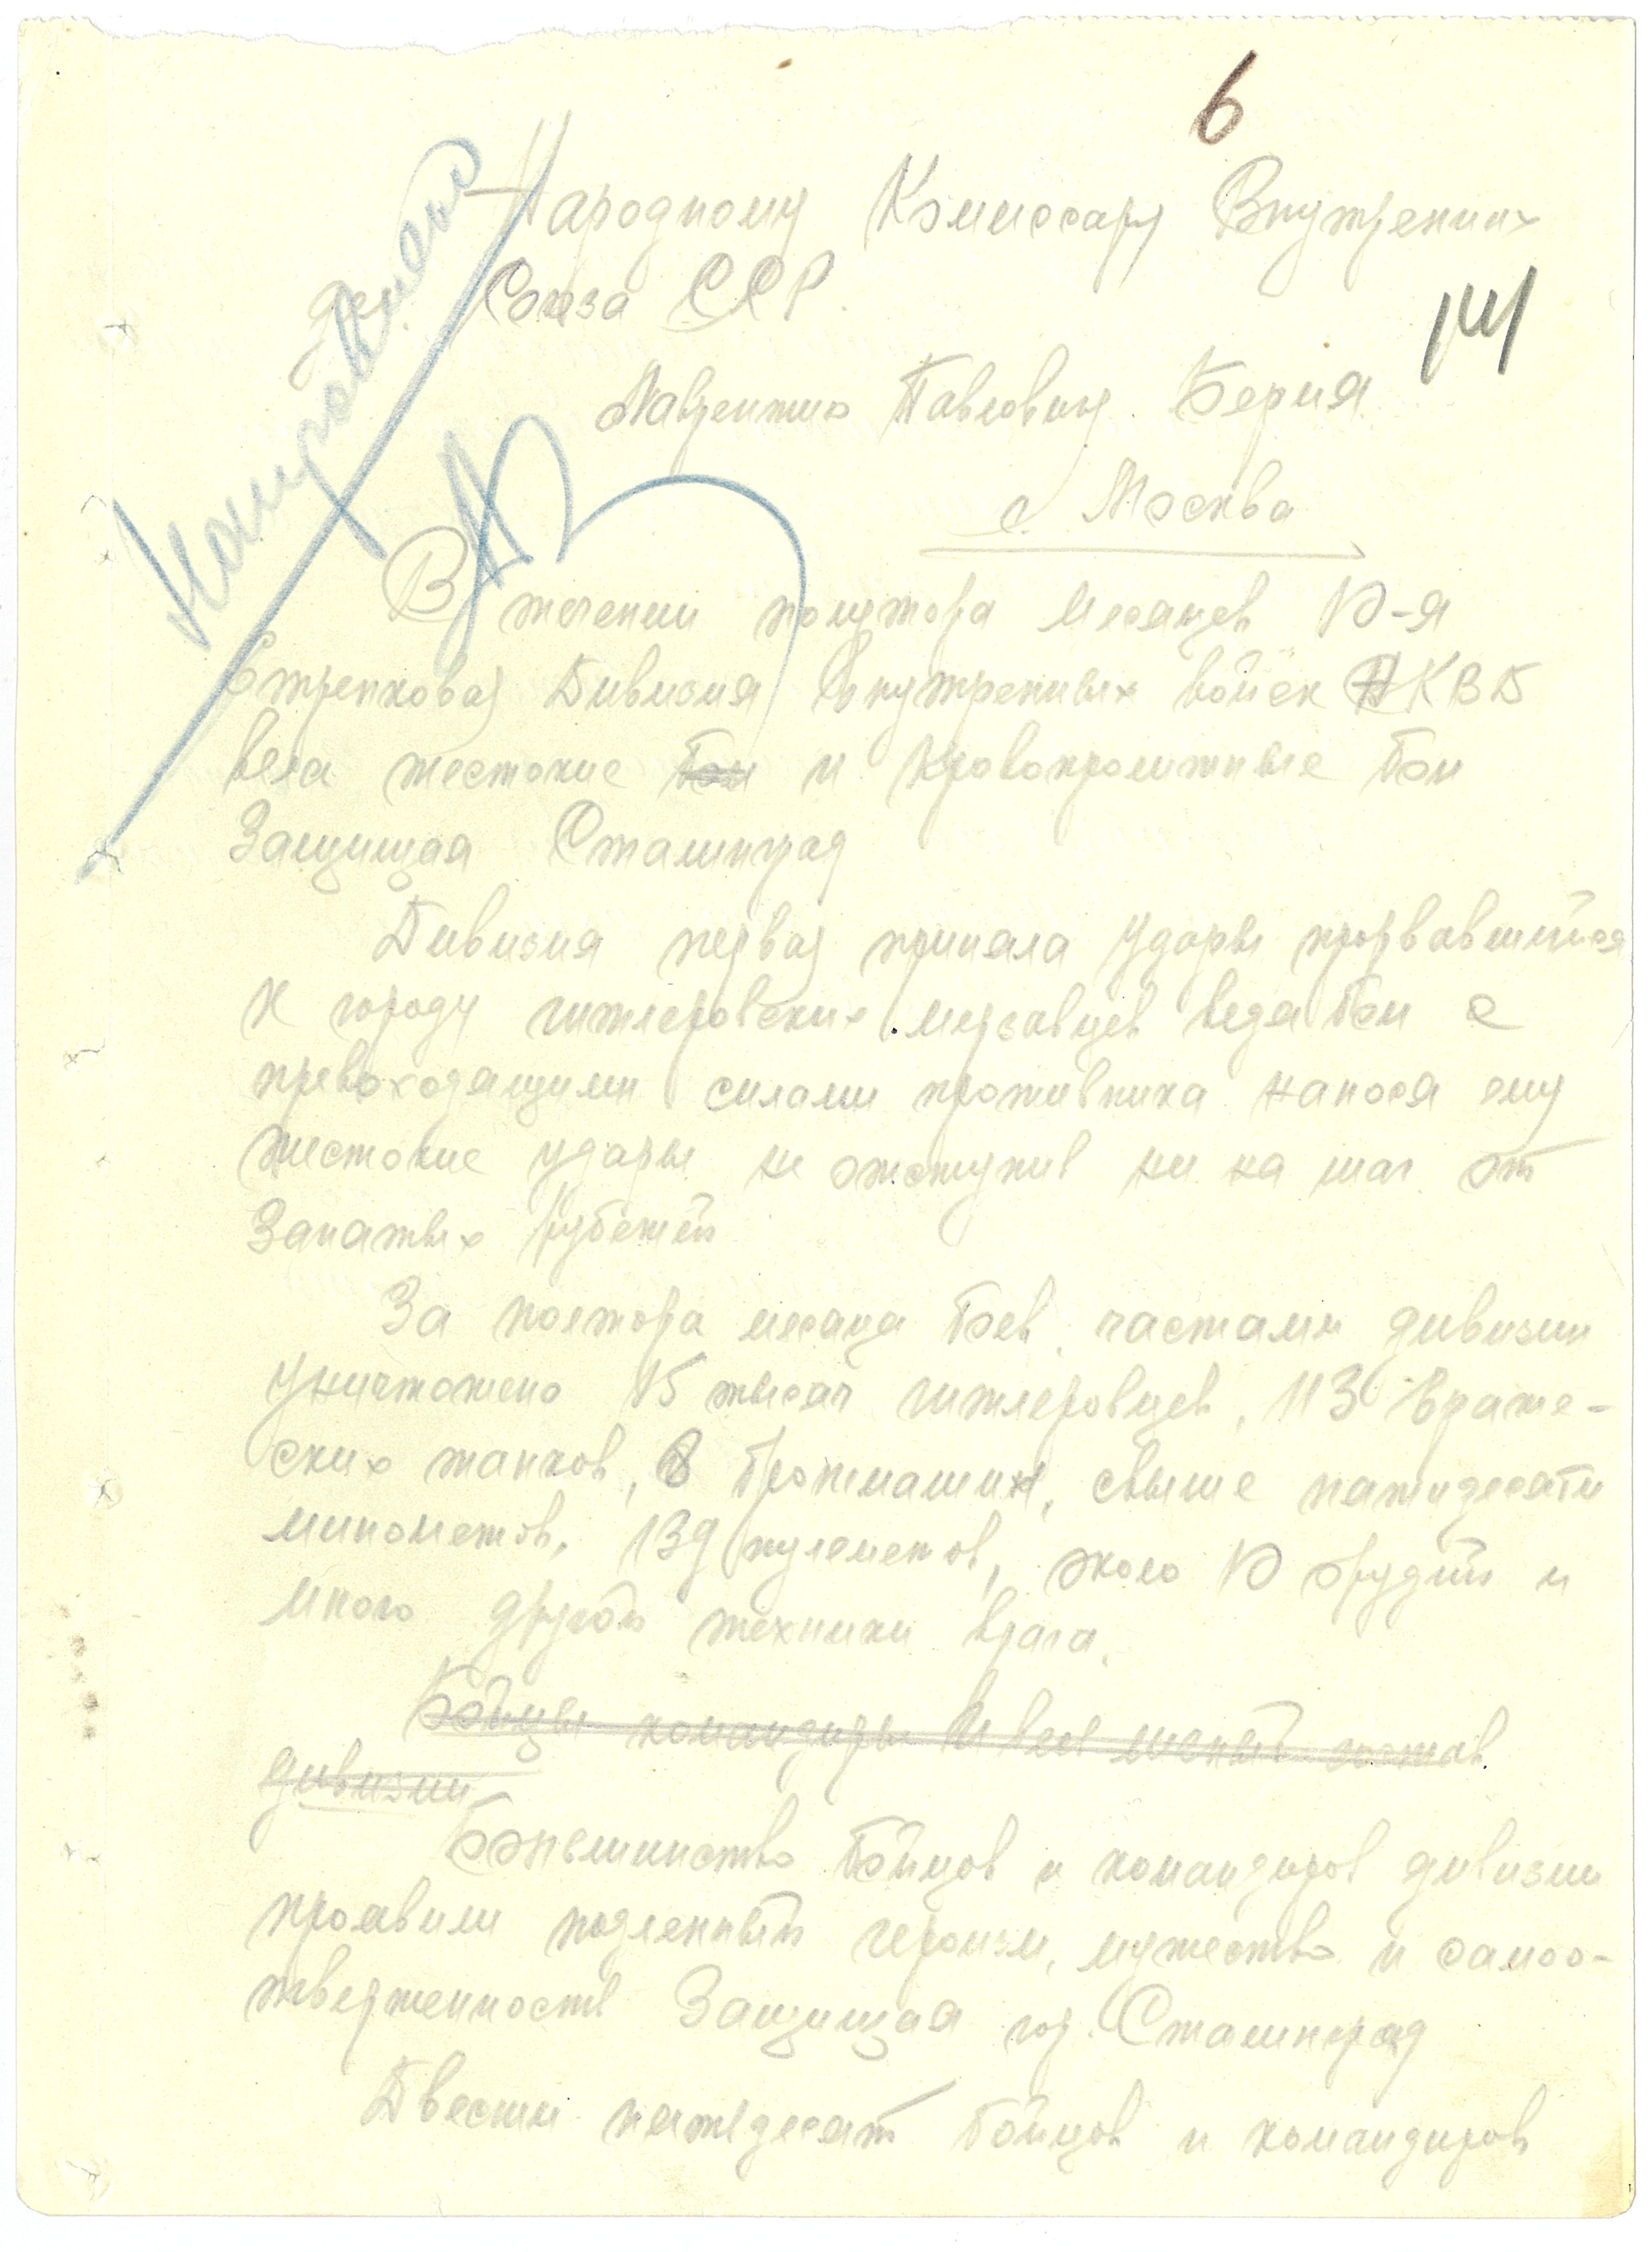 6
Народному Комиссару Внутренних
дел. Союза ССР.
141
Лаврентию Павловичу Берия
г. Москва
В течении полутора месяцев 10-я
Стрелковая Дивизия Внутренних войск НКВД
вела жестокие бои и кровопролитные бои
Защищая Сталинград
Дивизия первая приняла удары прорвавшийся
К городу гитлеровских мерзавцев ведя бои с
превоходящими силами противника нанося ему
жестокие удары не отступив ни на шаг от
Занятых рубежей
За полтора месяца боев частями дивизии
уничтожено 15 тысяч гитлеровцев, 113 враже-
ских танков, 8 бронемашин, свыше пятидесяти
минометов, 139 пулеметов, около 10 орудий и
много другой техники врага.
Бойцы командиры и весь личный состав
дивизии
Большинство бойцов и командиров дивизии
проявили подленный героизм, мужество и самоо-
тверженность Защищая гор. Сталинград
Двести пятьдесят бойцов и командиров